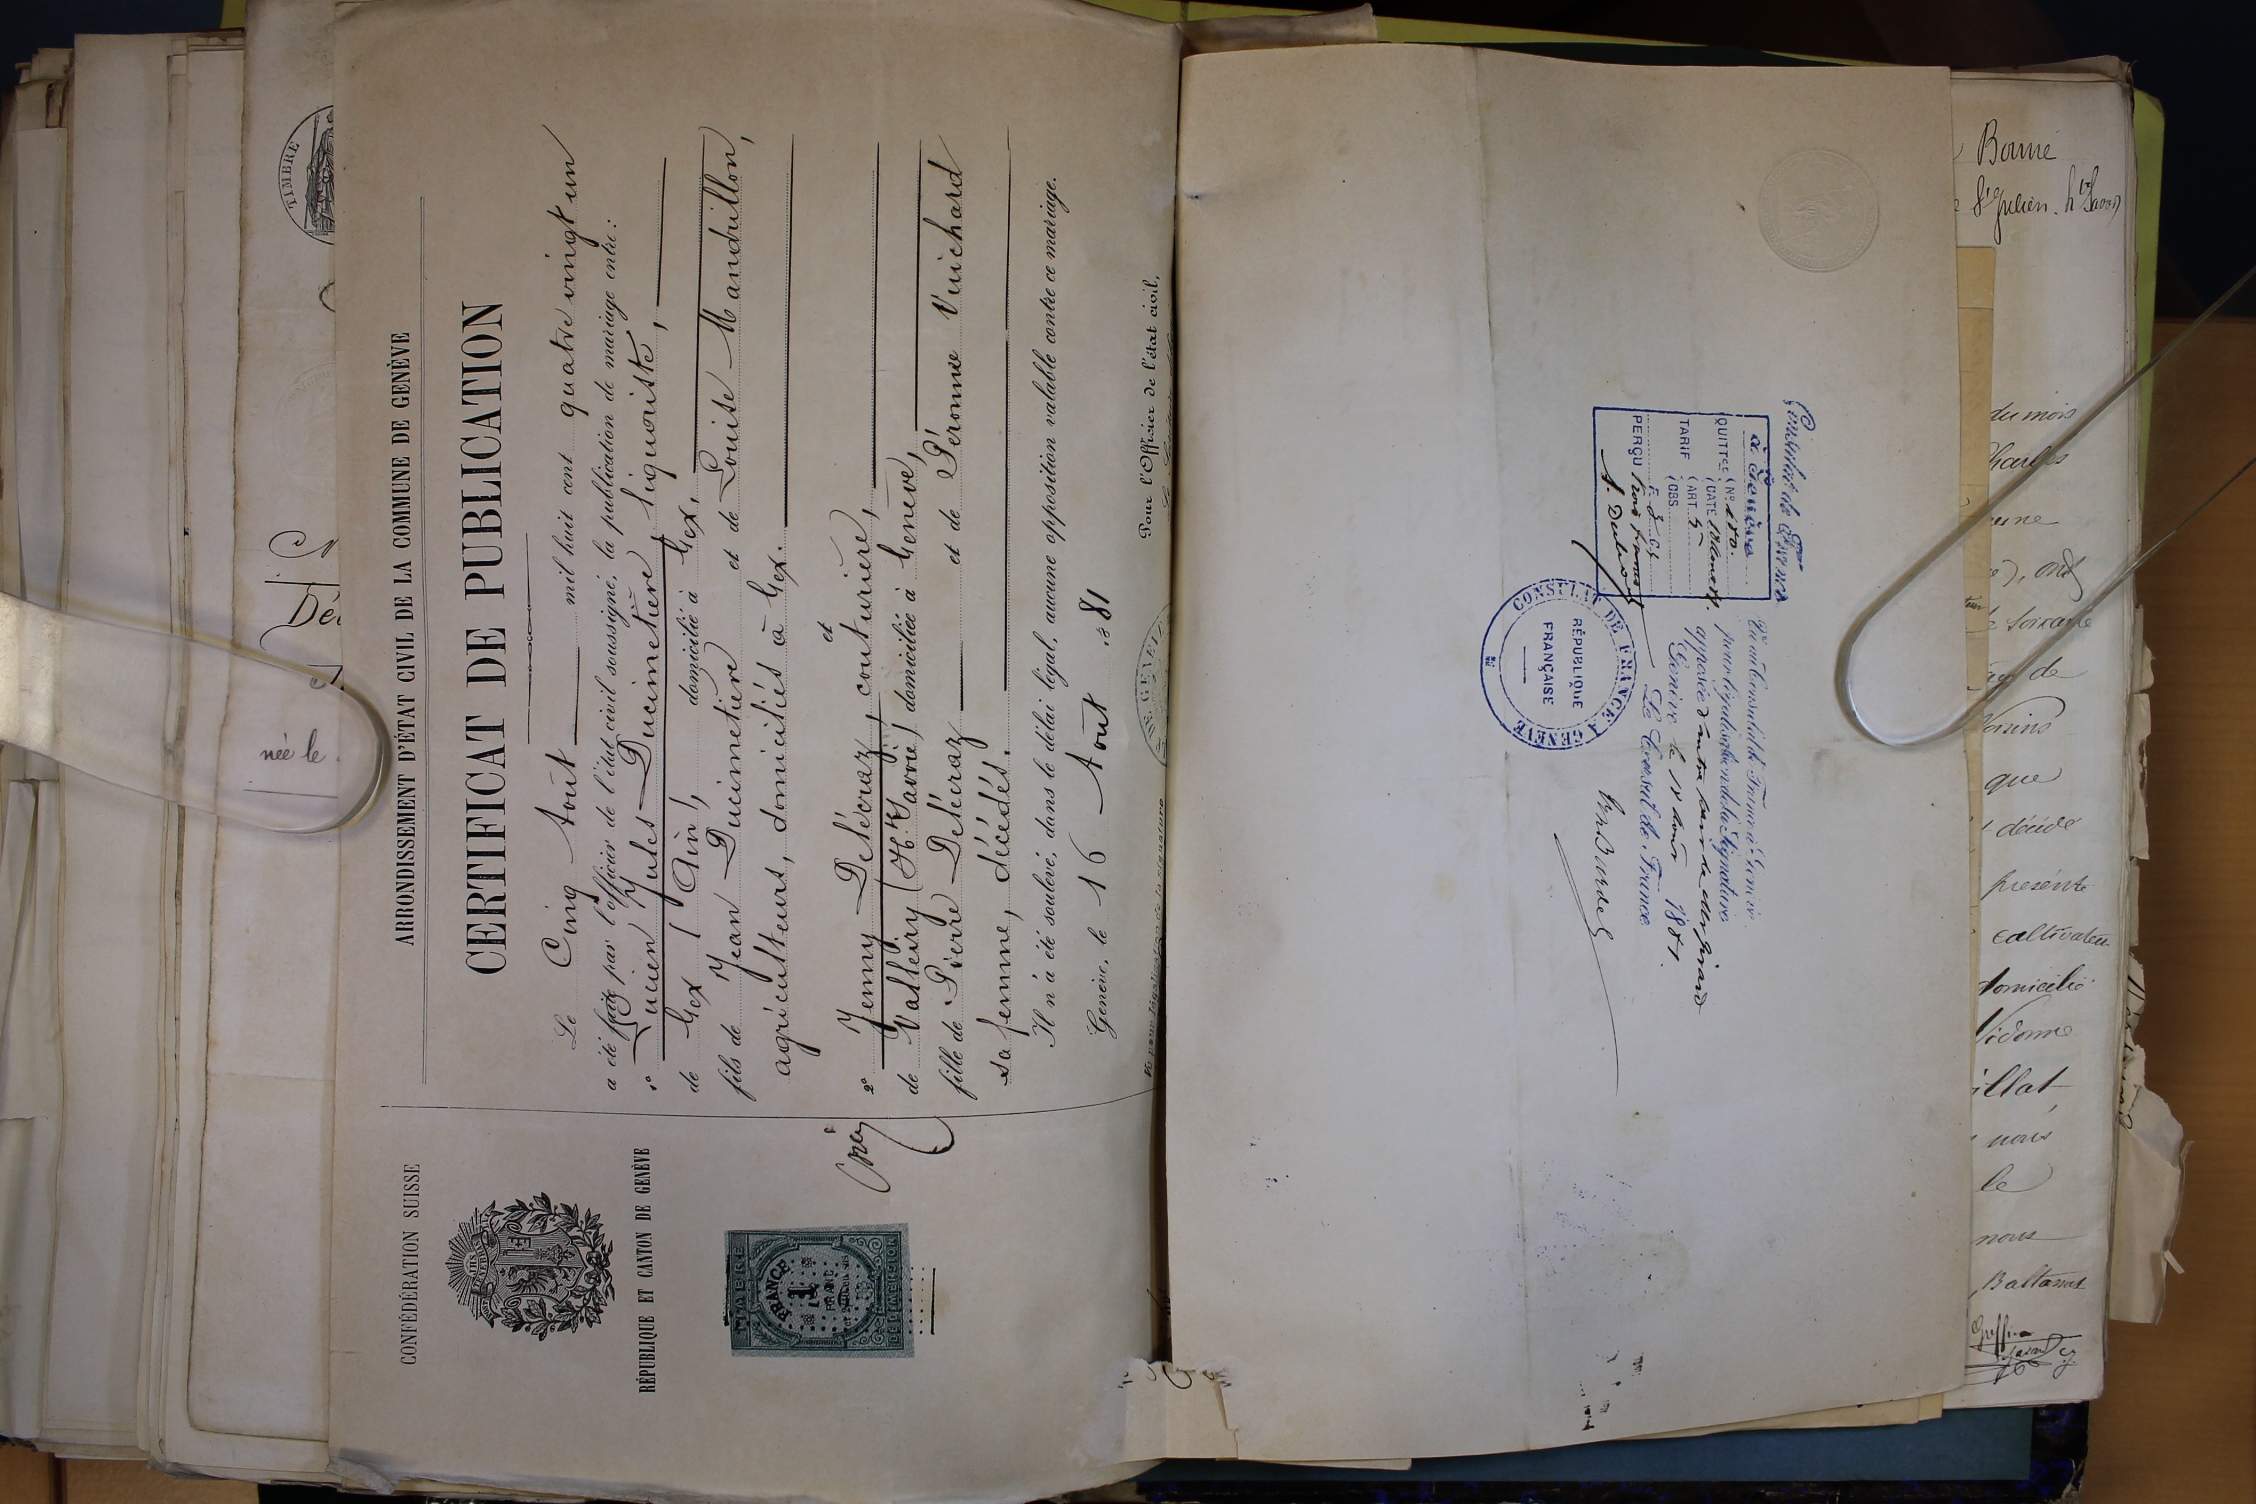 CONFÉDÉRATION SUISSE
RÉPUBLIQUE ET CANTON DE GENÈVE
TIMBRE
FRANCE
1
FRANC
DIMENSION
ARRONDISSEMENT D'ÉTAT CIVIL DE LA COMMUNE DE GENÈVE
CERTIFICAT DE PUBLICATION
Le Cinq Août mil huit cent quatre vingt un
a été faite par l'officier de l'état civil soussigné, la publication de mariage entre:
1° Lucien Jules Ducimetière, liquoriste,
de Gex (Ain), domicilié à Gex,
fils de Jean Ducimetière et de Louise Mandrillon,
agriculteurs, domiciliés à Gex.
et
2° Jenny Deléraz, couturière,
de Valleiry (Hte Savoie) domiciliée à Genève,
fille de Pierre Deléraz et de Péronne Vuichard
sa femme, décédés.
Il n'a été soulevé, dans le délai légal, aucune opposition valable contre ce mariage.
Genève, le 16 Août 1881
Pour l'Officier de l'état civil,
Vu pour légalisation de la signature
DE GENÈVE
TIMBRE
née le
Consulat de France
à Genève
QUITCE N° 180
DATE 18 août 81.
TARIF ART. 5
OBS.
F. 3 CS.
PERÇU trois francs
CONSULAT DE FRANCE A GENÈVE
RÉPUBLIQUE
FRANÇAISE
Vu au Consulat de France à Genève
pour légalisation de la signature
apposée d'autre part de Mr Girard
Genève le 18 août 1881.
Le Consul de France
Bonne
St Julien. hte Savoie
du mois
Charles
soixante
de
que
décidé
présente
cultivateur
domicilié
Vidonne
illat
nous
le
nous
Baltassat